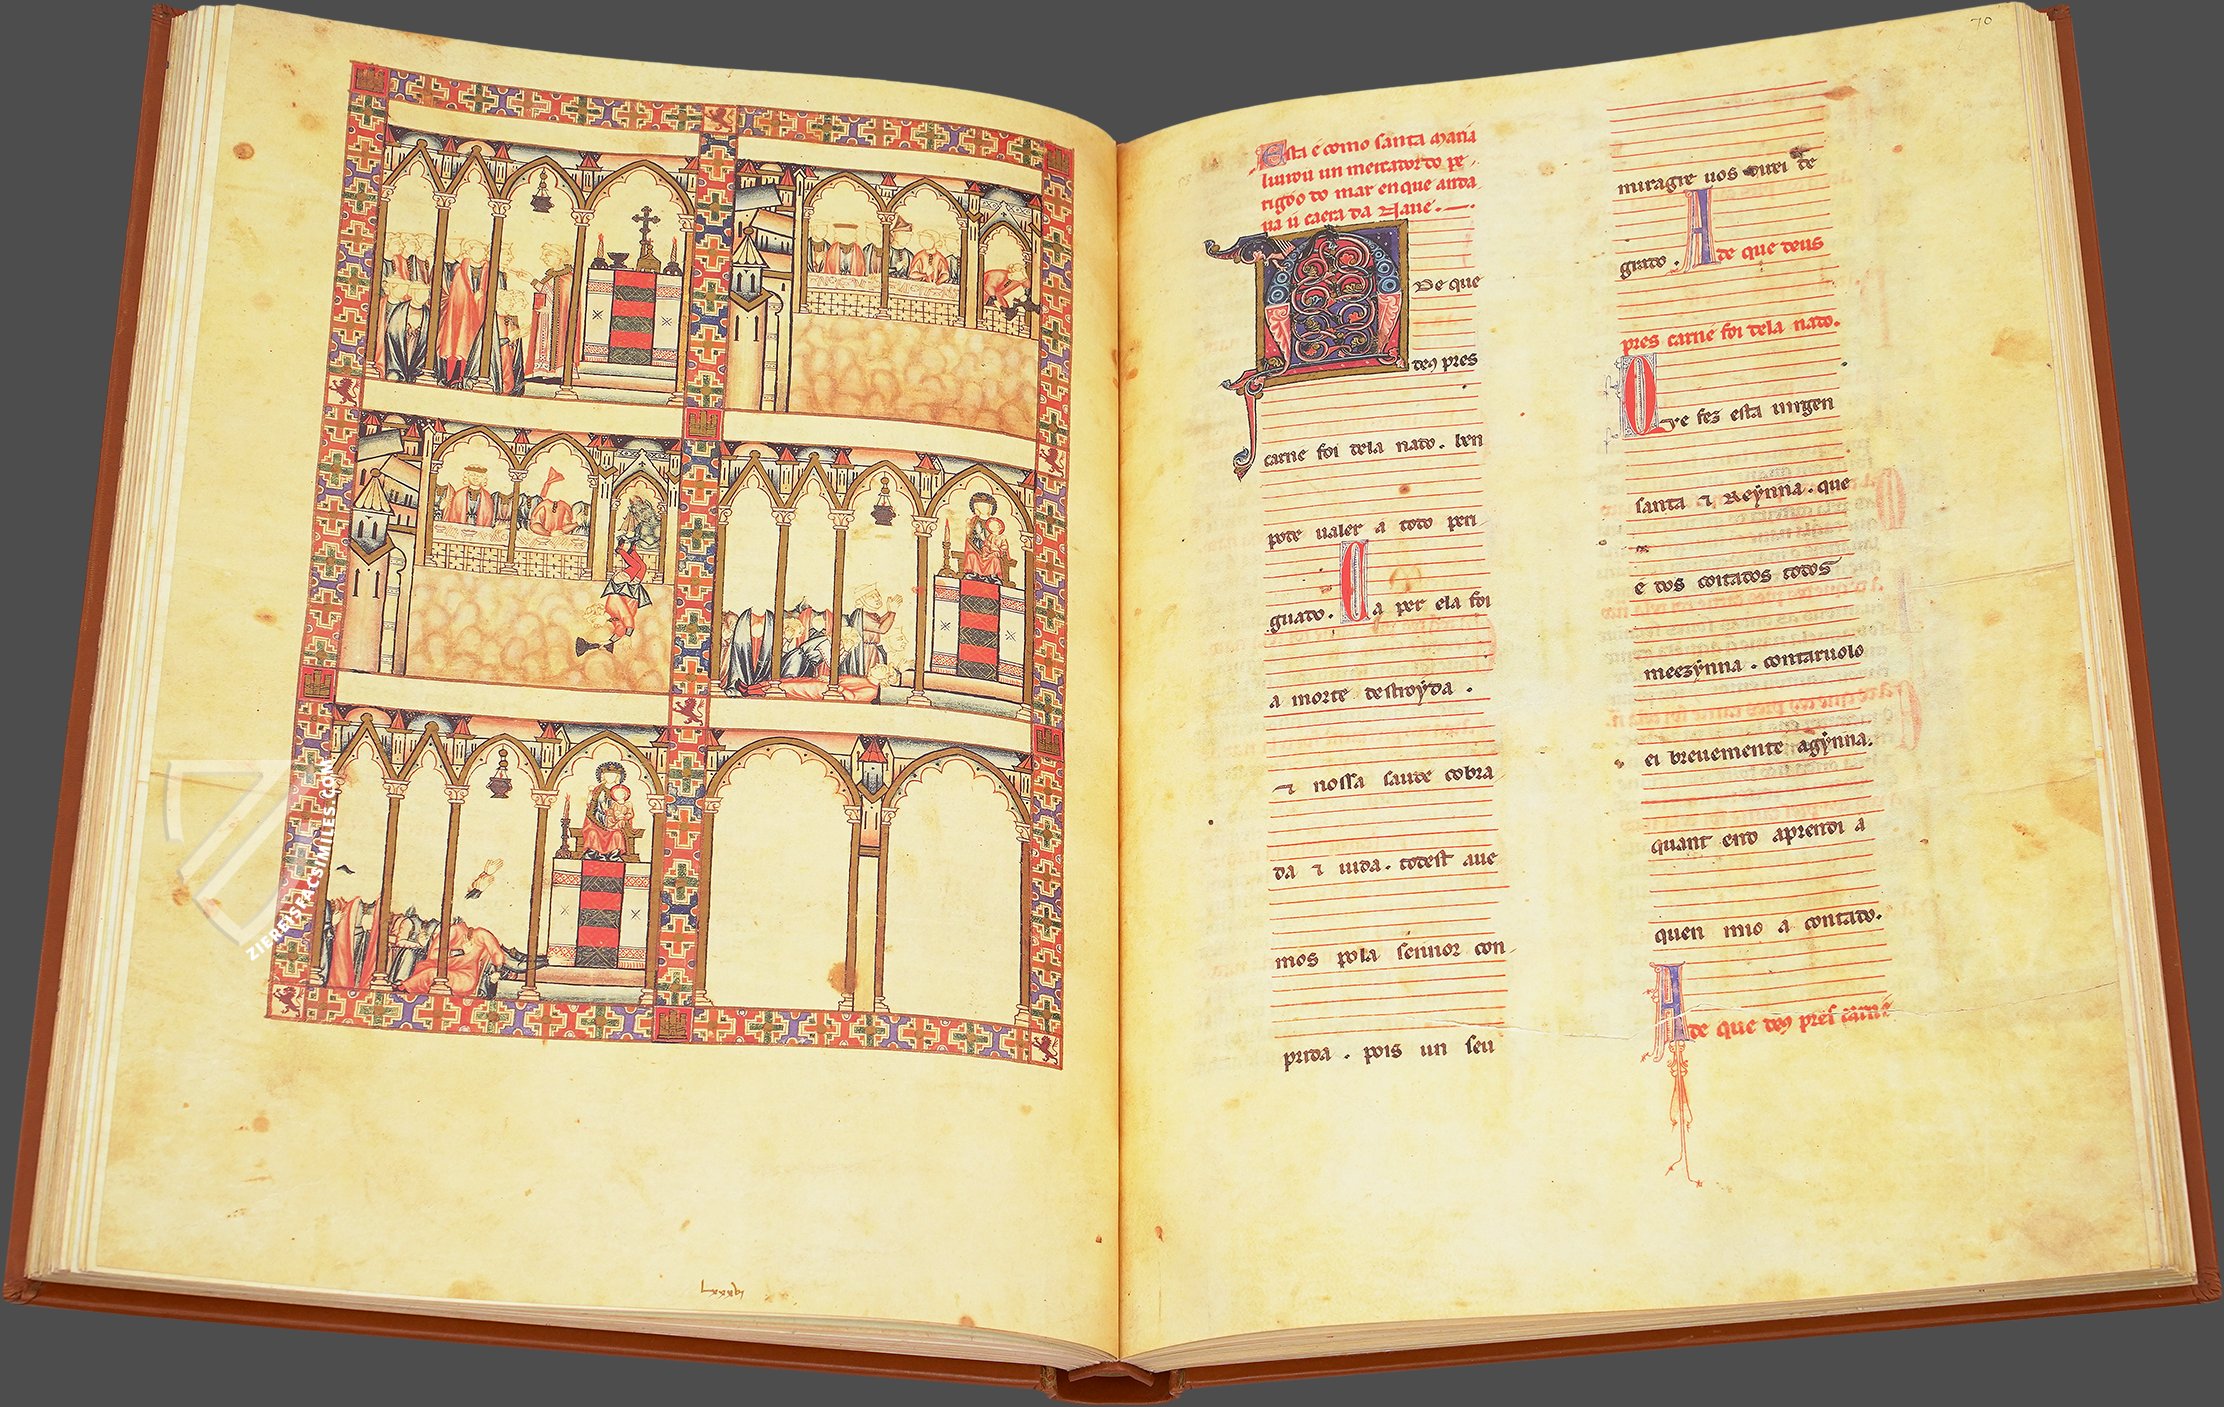 ZIEREISFACSIMILES.COM
lxxxvi
70
Esta e como santa Maria
liurou un mercador do pe-
rigoo do mar en que anda
ua u caera da Naue.
A De que
deꝯ pres
carne foi dela nado. ben
pote ualer a todo peri-
guado. Ca per ela foi
a morte destroyda.
⁊ nossa saude cobra
da ⁊ uida. todest aue
mos pola sennor con-
prida. pois un seu
miragre uos direi de
grado. A de que deus
pres carne foi dela nado.
Que fez esta uirgen
santa ⁊ Reynna. que
e dos coitados todos
meezynna. contaruolo
ei breuemente agynna.
quant end aprendi a
quen mio a contado.
A de que deꝯ pres carne